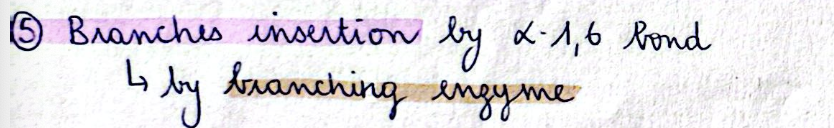 ⑤ Branches insertion by α-1,6 bond
↳ by branching enzyme